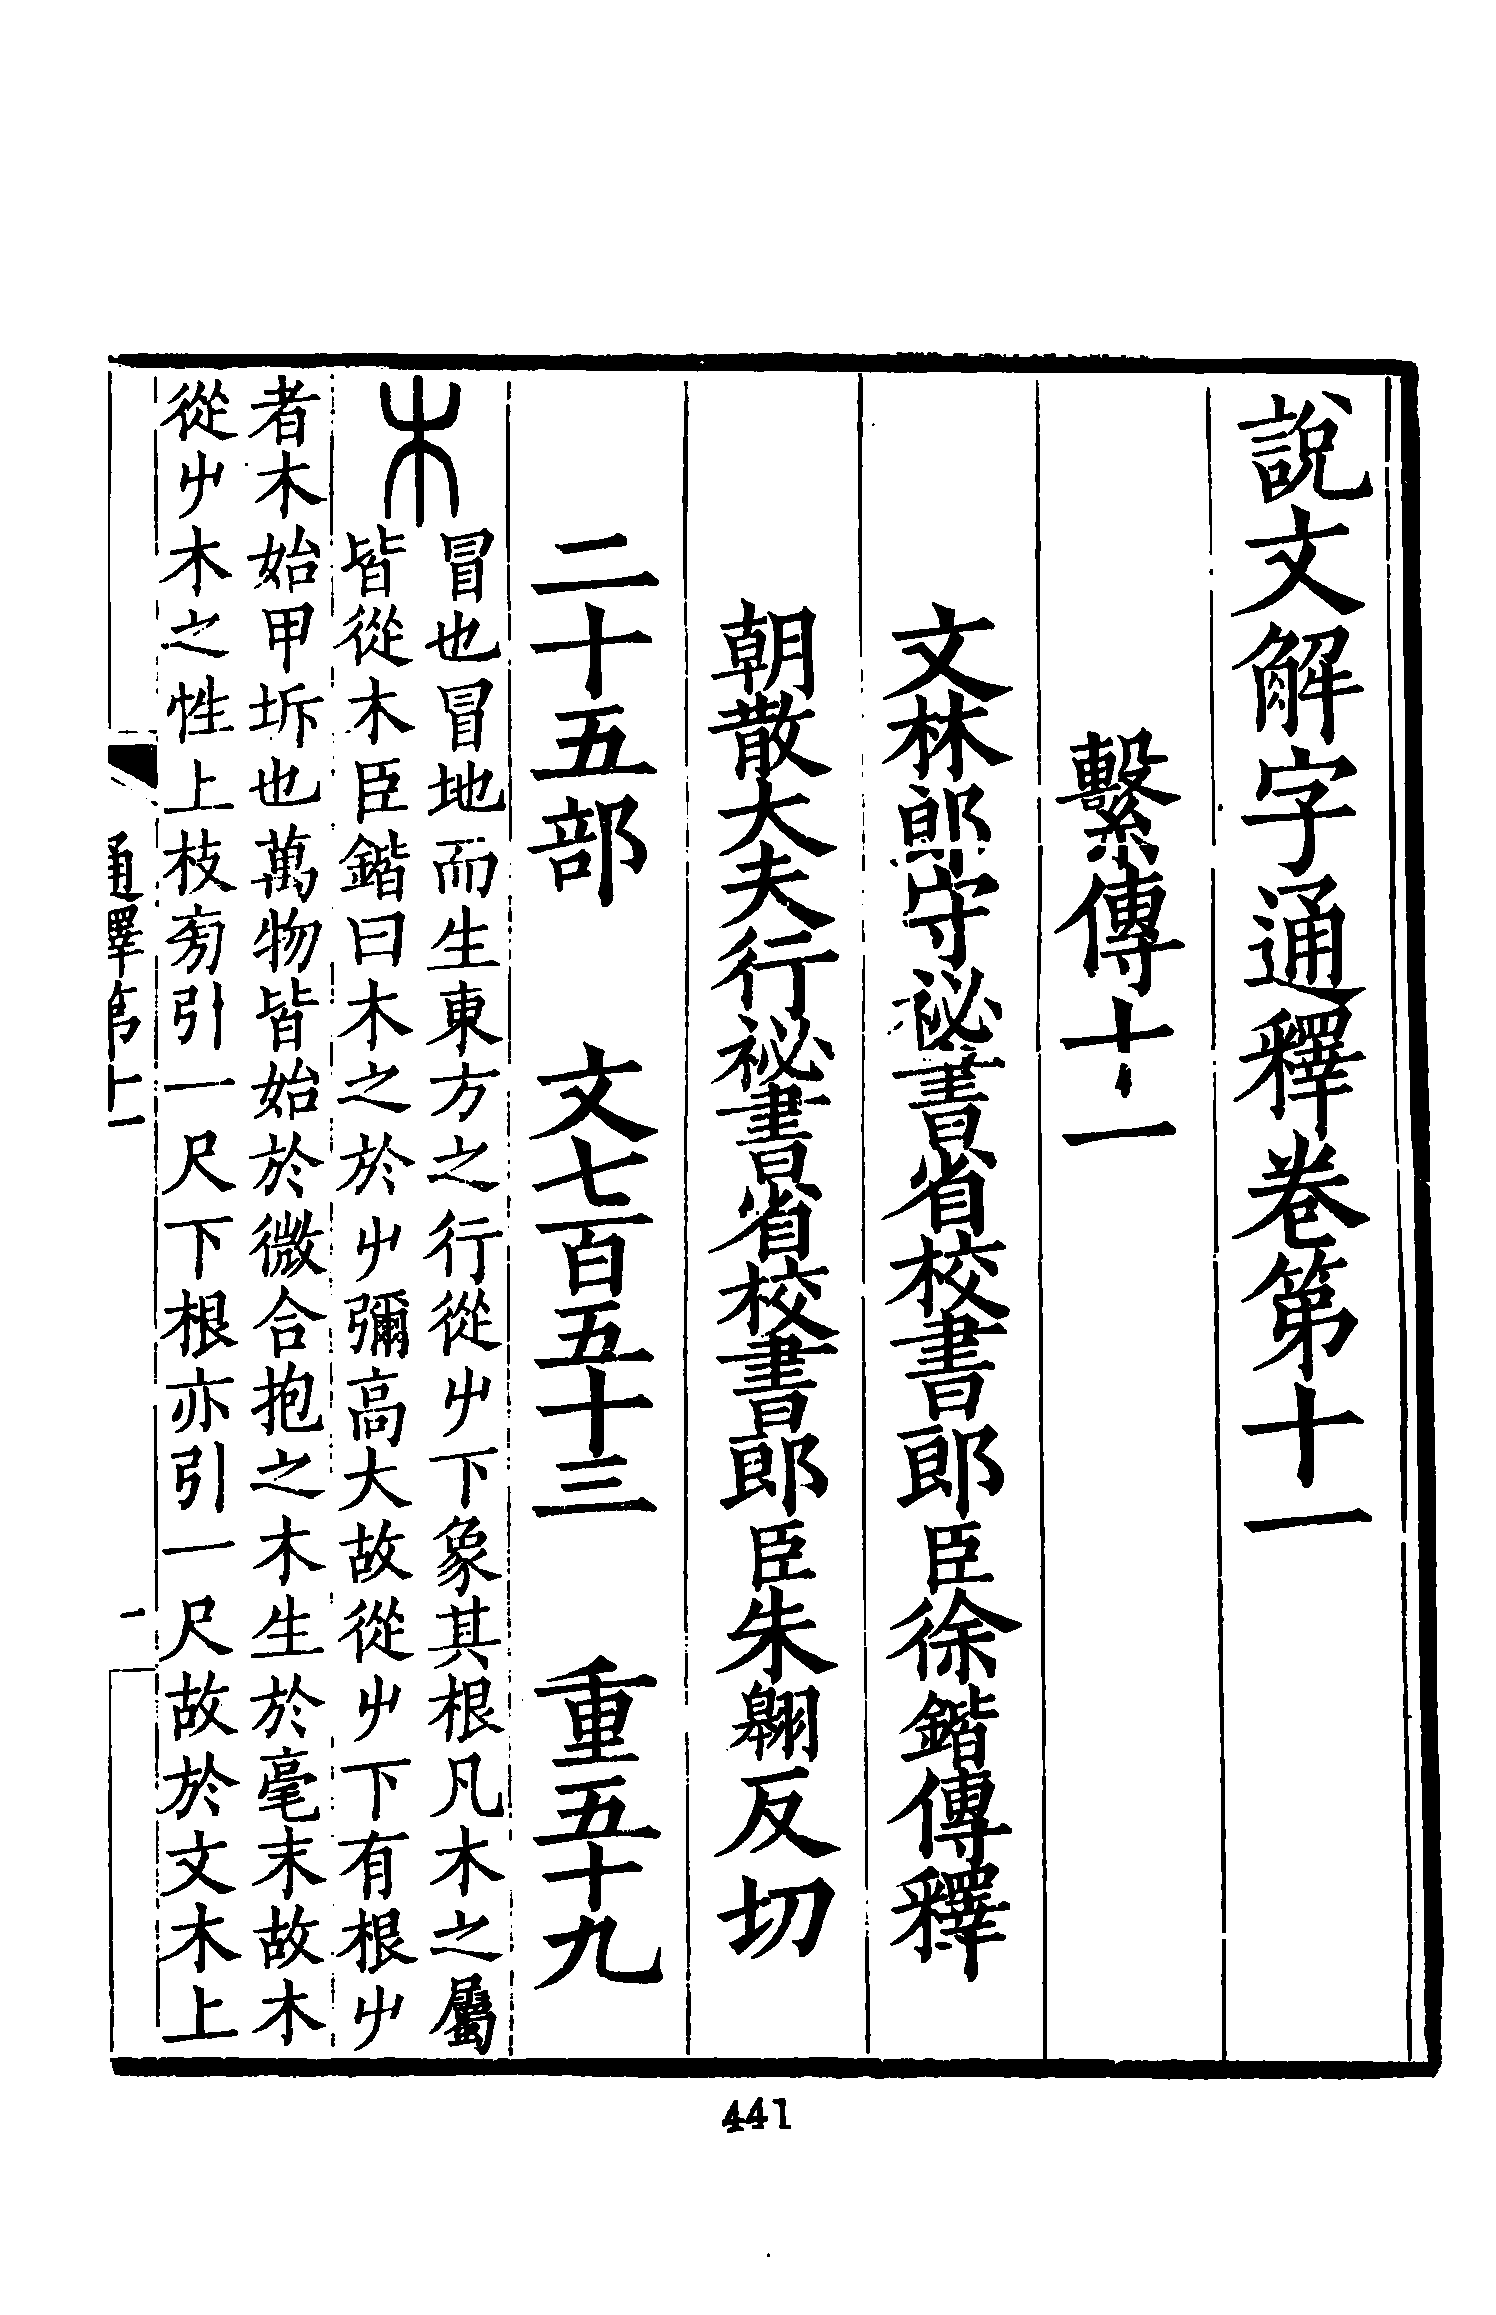 說文解字通釋卷第十一
繫傳十一
文林郎守祕書省校書郎臣徐鍇傳釋
朝散大夫行祕書省校書郎臣朱翱反切
二十五部 文七百五十三 重五十九
木
冒也冒地而生東方之行從屮下象其根凡木之屬
皆從木臣鍇曰木之於屮彌高大故從屮下有根屮
者木始甲坼也萬物皆始於微合抱之木生於毫末故木
從屮木之性上枝旁引一尺下根亦引一尺故於文木上
通釋第十一
一
441